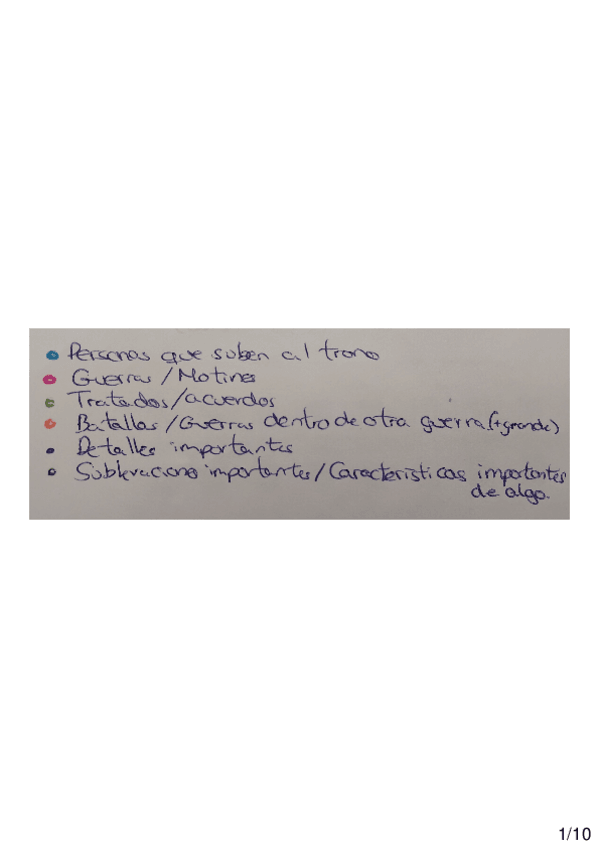 Personas que suben al trono
Guerras / Motines
Tratados/acuerdos
Batallas / Guerras dentro de otra guerra (+grande)
Detalles importantes
Sublevaciones importantes / Características importantes
de algo.
1/10